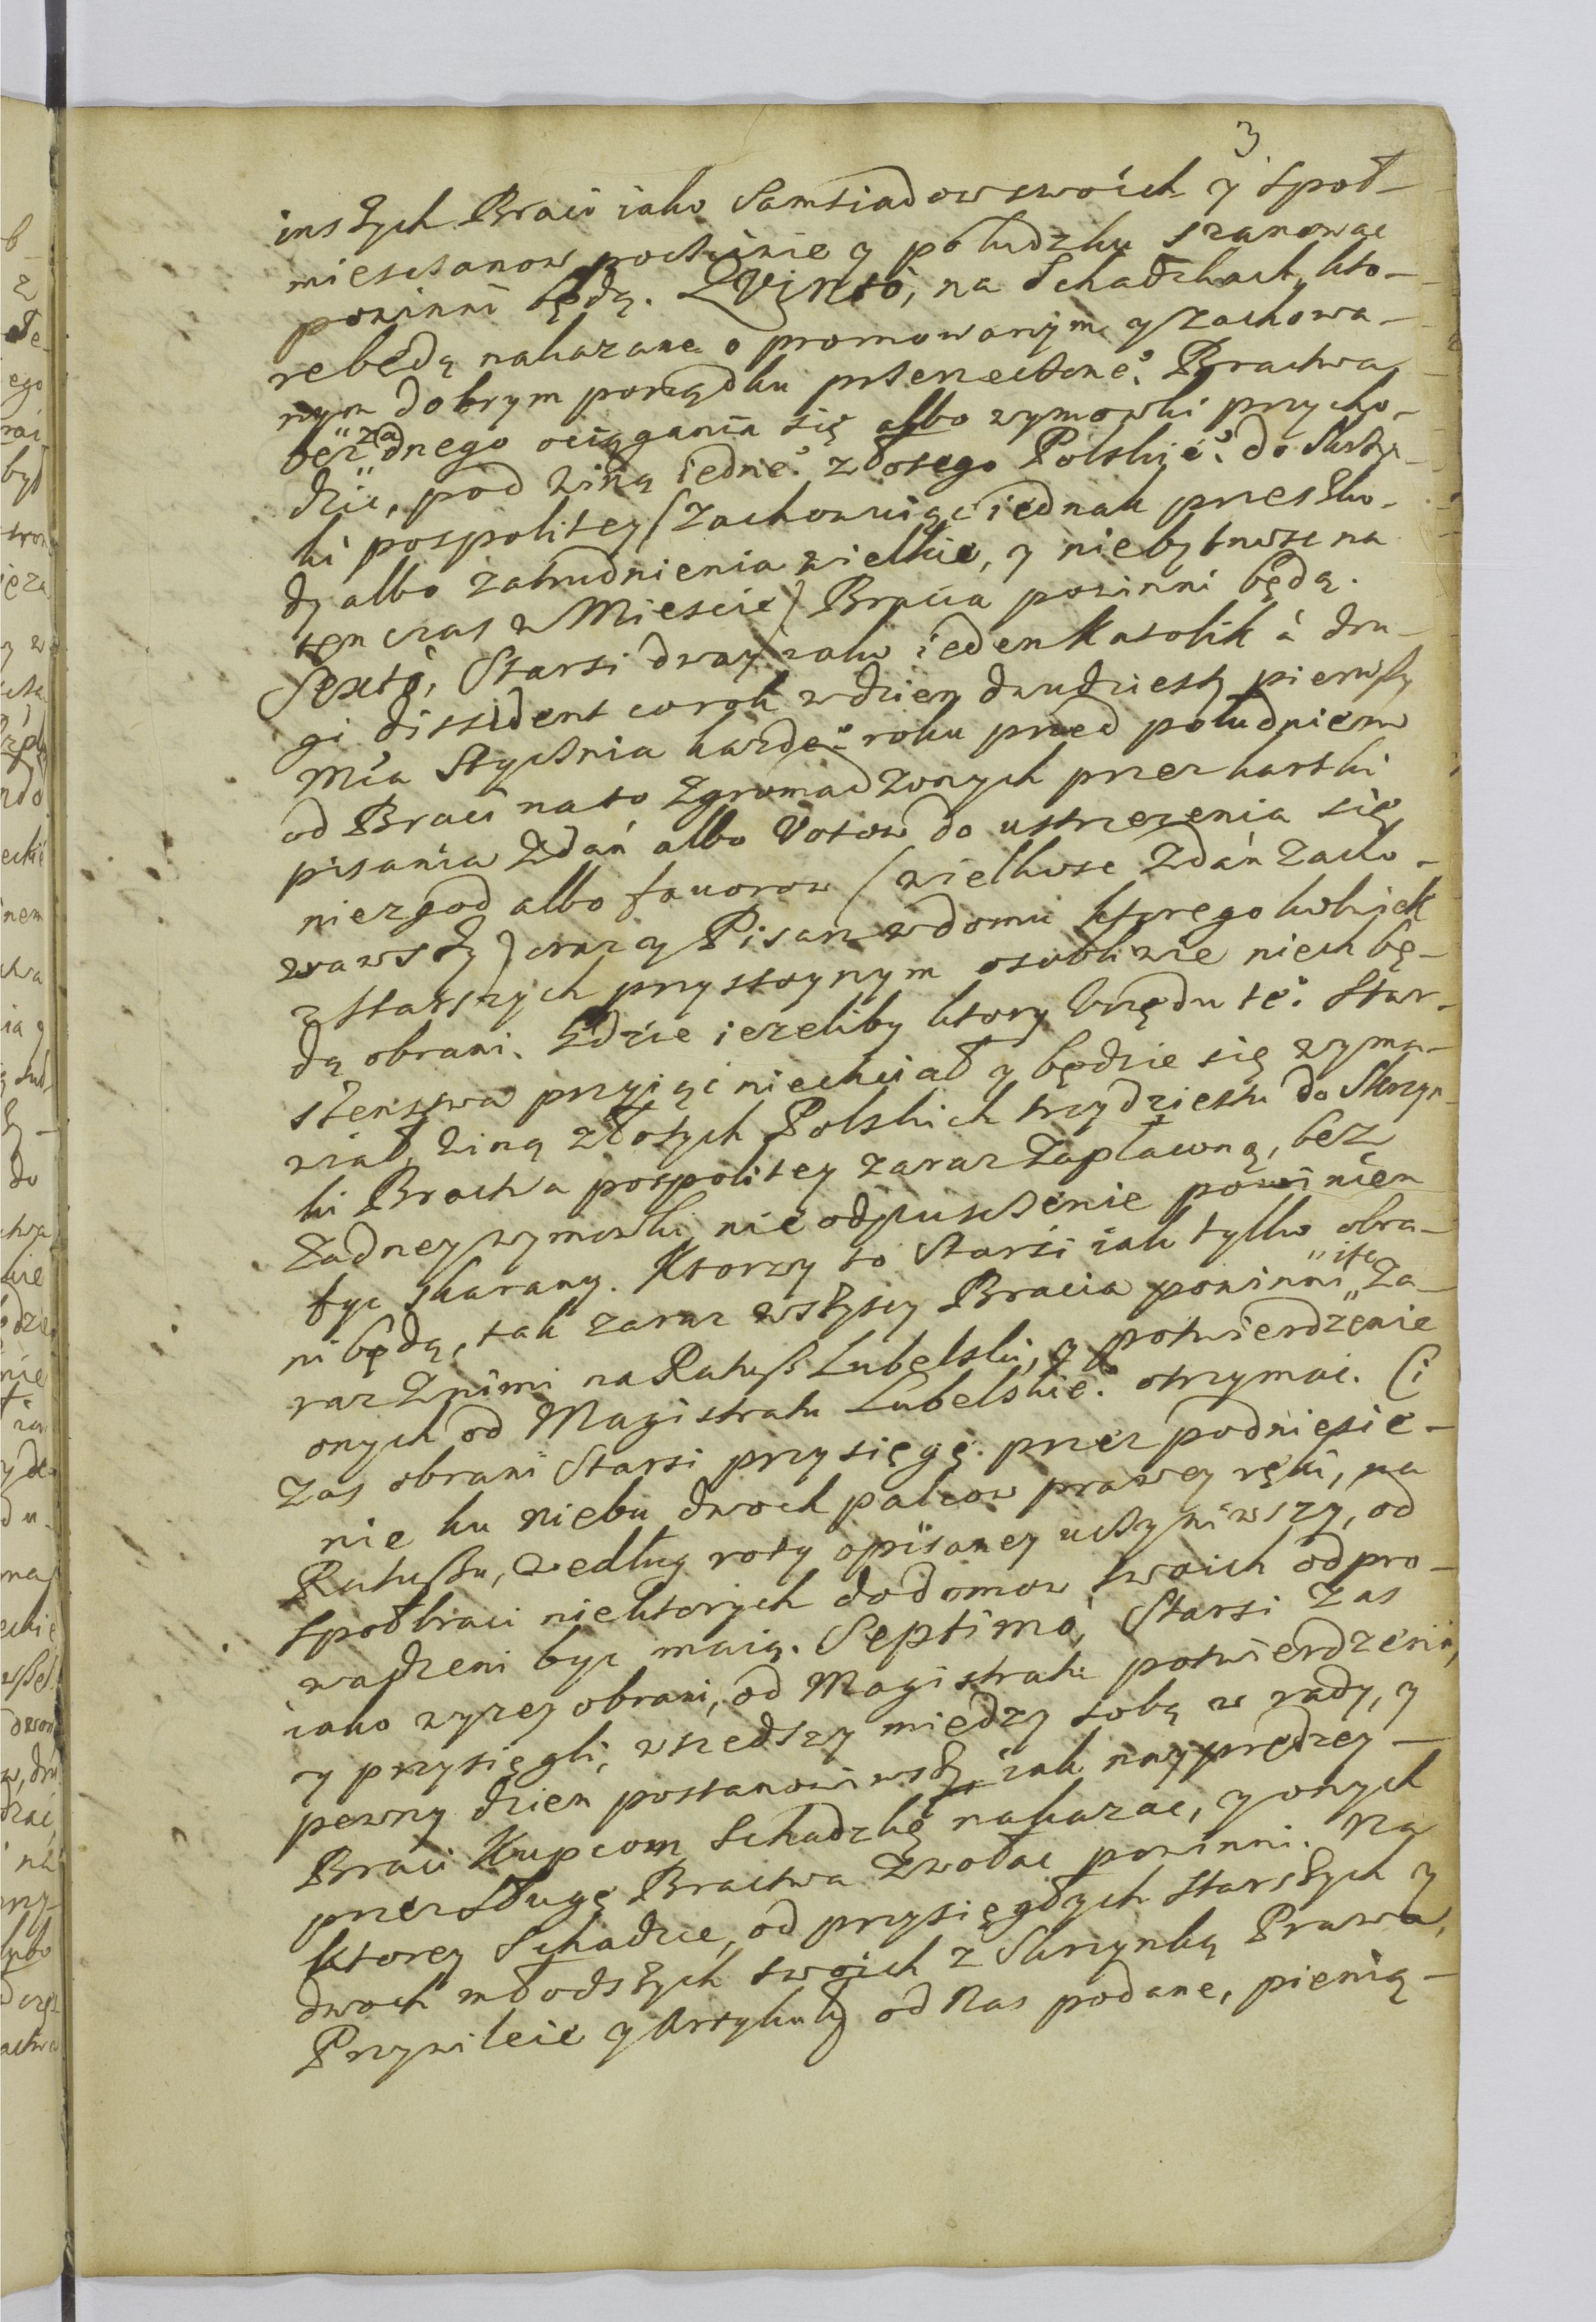 3
inszych Braci iako Samsiadow swoich y społ-
miescanow poczciwie y poludzku szanowac
powinni będą. Qvinto, na Schadzkach, kto-
rebędą nakazane o promowanym y zachowa-
nym dobrym porządku przerzeczone° Bractwa,
bez żadnego ociągania się albo wymowki przycho-
dzic, pod winą iedne° złotego Polskie° do Skrzy-
ki pospolitey (zachowuiąc iednak przeszko-
dy albo zatrudnienia wielkie, y niebytnosc na
ten czas w Miescie) Bracia powinni będą.
Sexto, Starsi dway iako ieden Katolik à dru-
gi dissident corok wdzien dwudziesty pierwszy
Mca Stycznia kazde° roku przed południem
od Braci nato zgromadzonych przez kartki
pisania zdań albo Votow do ustrzezenia się
niezgod albo fauorow (wielkosc zdań zacho-
wawszy) oraz y Pisarz wdomu ktoregokolwiek
zstarszych przystoynym osobliwie niech bę-
dą obrani. Gdzie iezeliby ktory Urzędu te° Star-
szenstwa przyiąc niechciał y będzie się wyma-
wiał, winą złotych Polskich trzydziestu do Skrzyn-
ki Bractwa pospolitey zaraz zapłacną, bez
żadney wymowki nieodpuscżenie powinien
byc skarany. Ktorzy to Starsi iak tylko obra-
ni będą, tak zaraz wszyscy Bracia powinni isc za-
raz znimi na Ratusz Lubelski, y potwierdzenie
onych od Magistratu Lubelskie° otrzymac. Ci
zas obrani Starsi przysięgę przez podniesie-
nie ku niebu dwoch palcow prawey ręki, na
Ratuszu, według roty opisaney uczyniwszy, od
społbraci niektorych dodomow swoich odpro-
wadzeni byc maią. Septimo, Starsi zas
iako wyzey obrani, od Magistratu potwierdzeni,
y przysięgli, wszedszy między sobą w rady, y
pewny dzien postanowiwszy iak nayprędzey
Braci Kupcom Schadzkę nakazac, y onych
przez sługę Bractwa zwołac powinni. Na
ktorey Schadzce, od przysięgłych starszych y
dwoch młodszych swoich z Skrzynką Prawa,
Przywileie y Artykuły od Nas podane, pienią-